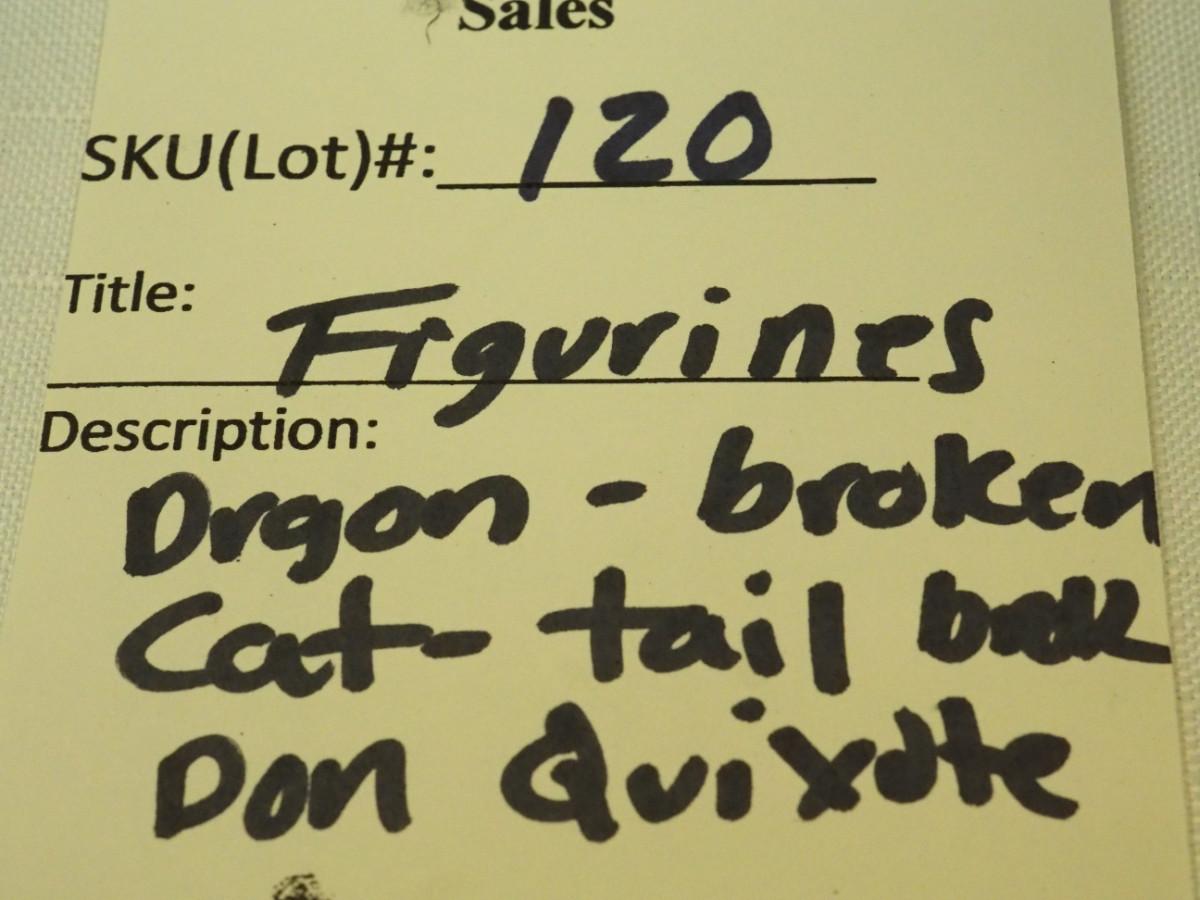 Sales
SKU(Lot)#: 120
Title: Figurines
Description:
Drgon - broken
Cat- tail
Don Quixote